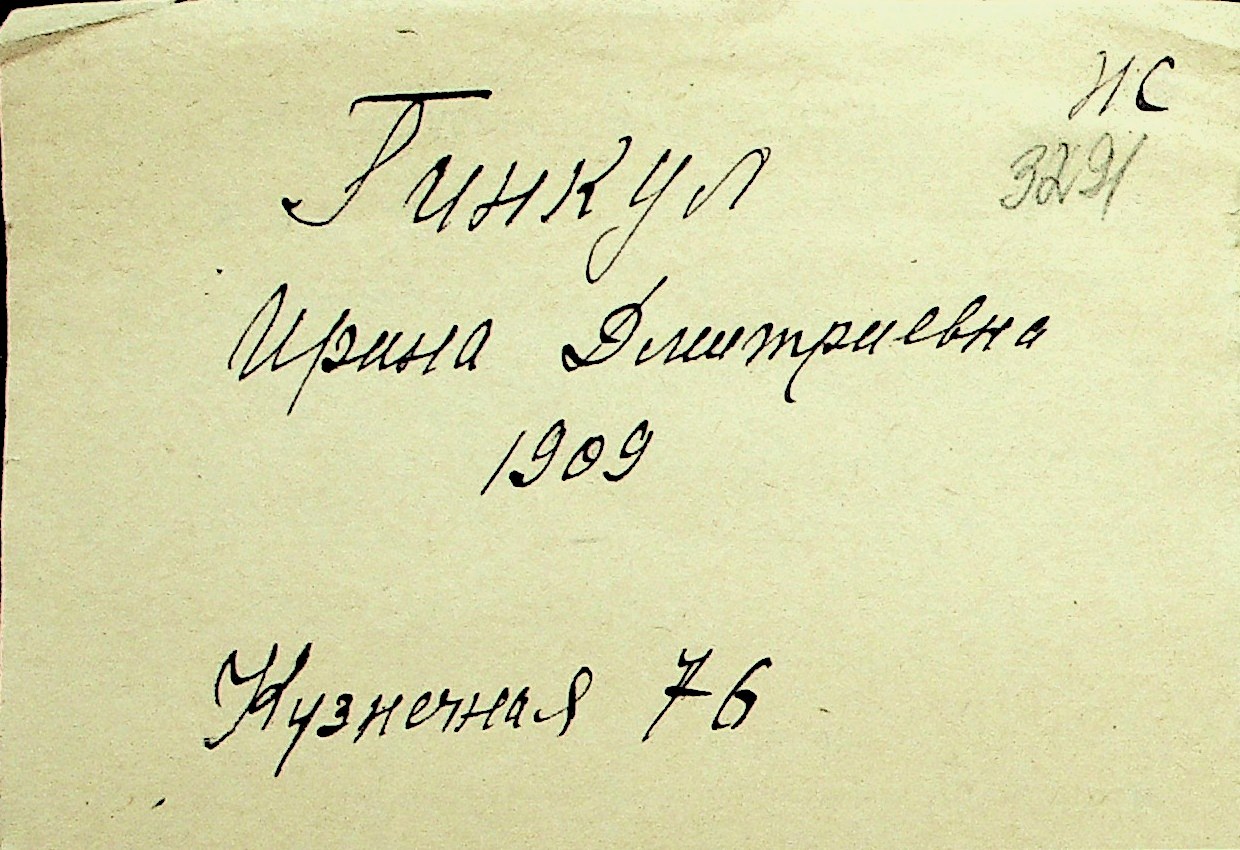 НС
3291
Гинкул
Ирина Дмитриевна
1909
Кузнечная 76